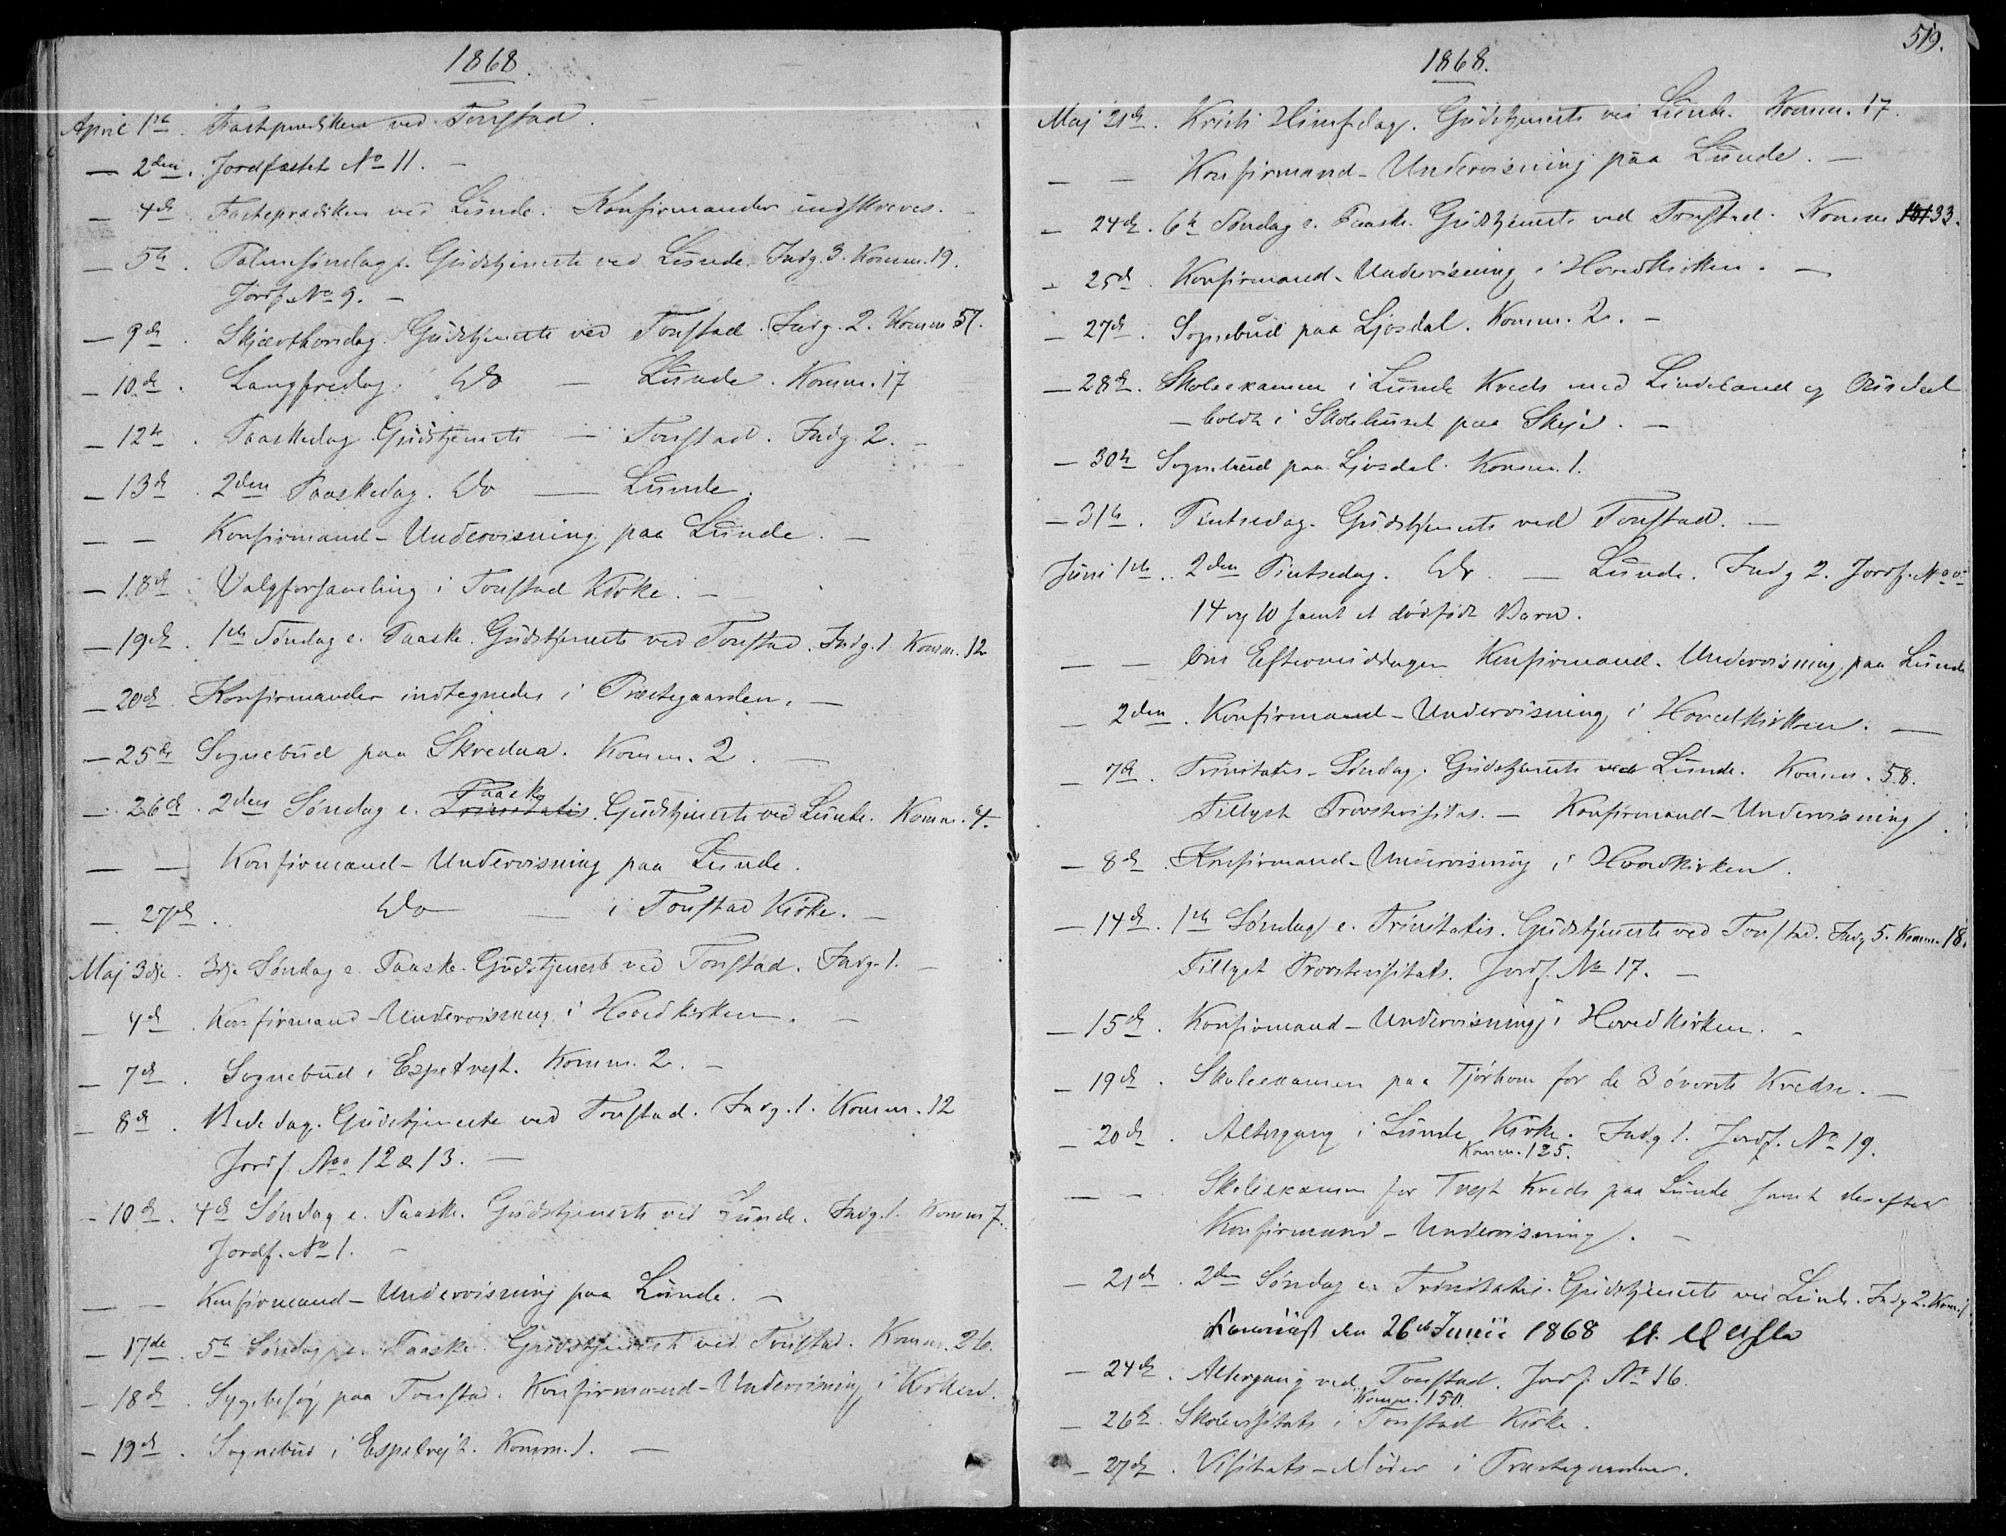 1868.
April 1ste. Fasteprædiken ved Tonstad.
— 2den. Jordfæstet No 11. —
— 4de Fasteprædiken ved Lunde. Konfirmander indskreves. —
— 5te. Palmesöndag. Gudstjeneste ved Lunde. Indg. 3. Komm. 19.
Jordf. No 9. —
— 9de. Skjærthorsdag Gudstjeneste ved Tonstad. Indg. 2. Komm. 57.
— 10de. Langfredag. Do — Lunde. Komm. 17
— 12te. Paaskedag Gudstjeneste — Tonstad. Indg. 2. —
— 13de. 2den Paaskedag. Do — Lunde.
— — Konfirmand-Undervisning paa Lunde. —
— 18de. Valgforsamling i Tonstad Kirke. —
— 19de. 1ste Söndag e. Paaske. Gudstjeneste ved Tonstad. Indg. 1 Komm. 12
— 20de. Konfirmander indtegnedes i Præstegaarden. —
— 25de Sognebud paa Skredaa. Komm. 2. —
Paaske
— 26de. 2den Söndag e. Trinitatis. Gudstjeneste ved Lunde. Komm. 4.
— — Konfirmand-Undervisning paa Lunde.
— 27de. Do — i Tonstad Kirke. —
Maj 3die. 3die Söndag e. Paaske. Gudstjeneste ved Tonstad. Indg. 1. —
— 4de. Konfirmand-Undervisning i Hovedkirken. —
— 7de. Sognebud i Espetvejt. Komm. 2. —
— 8de. Bededag. Gudstjeneste ved Tonstad. Indg. 1. Komm. 12
Jordf. Noo 12 & 13. —
— 10de. 4de Söndag e. Paaske. Gudstjeneste ved Lunde. Indg. 1. Komm 7.
Jordf. No 1. —
— — Konfirmand-Undervisning paa Lunde. —
— 17de. 5te Söndag e. Paaske. Gudstjeneste ved Tonstad. Komm. 26.
— 18de. Sygebesög paa Tonstad. Konfirmand-Undervisning i Kirken.
— 19de. Sognebud i Espetvejt. Komm. 1. —
519.
1868.
Maj 21de. Kristi Himfdag. Gudstjeneste ved Lunde. Komm. 17.
— — Konfirmand-Undervisning paa Lunde. —
— 24de. 6te Söndag e. Paaske. Gudstjeneste ved Tonstad. Komm. 33.
— 25de. Konfirmand-Undervisning i Hovedkirken. —
— 27de. Sognebud paa Ljosdal. Komm. 2. —
— 28de. Skoleexamen i Lunde Kreds med Lindeland og Ousdal
— holdt i Skolehuset paa Skeje. —
— 30te Sognebud paa Ljosdal. Komm. 1.
— 31te. Pintsedag. Gudstjeneste ved Tonstad. —
Juni 1ste. 2den Pintsedag. Do. — Lunde. Indg 2. Jordf. Noo
14 og 10 samt et dödfödt Barn.
— — Om Eftermiddagen Konfirmand-Undervisning paa Lunde
— 2den. Konfirmand-Undervisning i Hovedkirken. —
— 7de. Trinitatis-Söndag. Gudstjeneste ved Lunde. Komm. 58.
Tillyst Provstevisitas. — Konfirmand-Undervisning.
— 8de. Konfirmand-Undervisning i Hovedkirken.
— 14de. 1ste Söndag e. Trinitatis. Gudstjeneste ved Tonstad. Indg 5. Komm. 18.
Tillyst Provstevisitats. Jordf. No 17. —
— 15de. Konfirmand-Undervisning i Hovedkirken. —
— 19de. Skoleexamen paa Tjörhom for de 3 överste Kredse. —
— 20de. Altergang i Lunde Kirke. Indg 1. Jordf. No 19.
Komm. 125.
— — Skoleexamen for Tvejt Kreds paa Lunde samt derefter
Konfirmand-Undervisning. —
— 21de. 2den Söndag e. Trinitatis. Gudstjeneste ved Lunde. Indg 2. Komm 1
den 26de Junii 1868
— 24de. Altergang ved Tonstad. Jordf. No 16.
Komm. 150.
— 26de. Skolevisitats i Tonstad Kirke.
— 27de. Visitats-Möder i Præstegaarden.